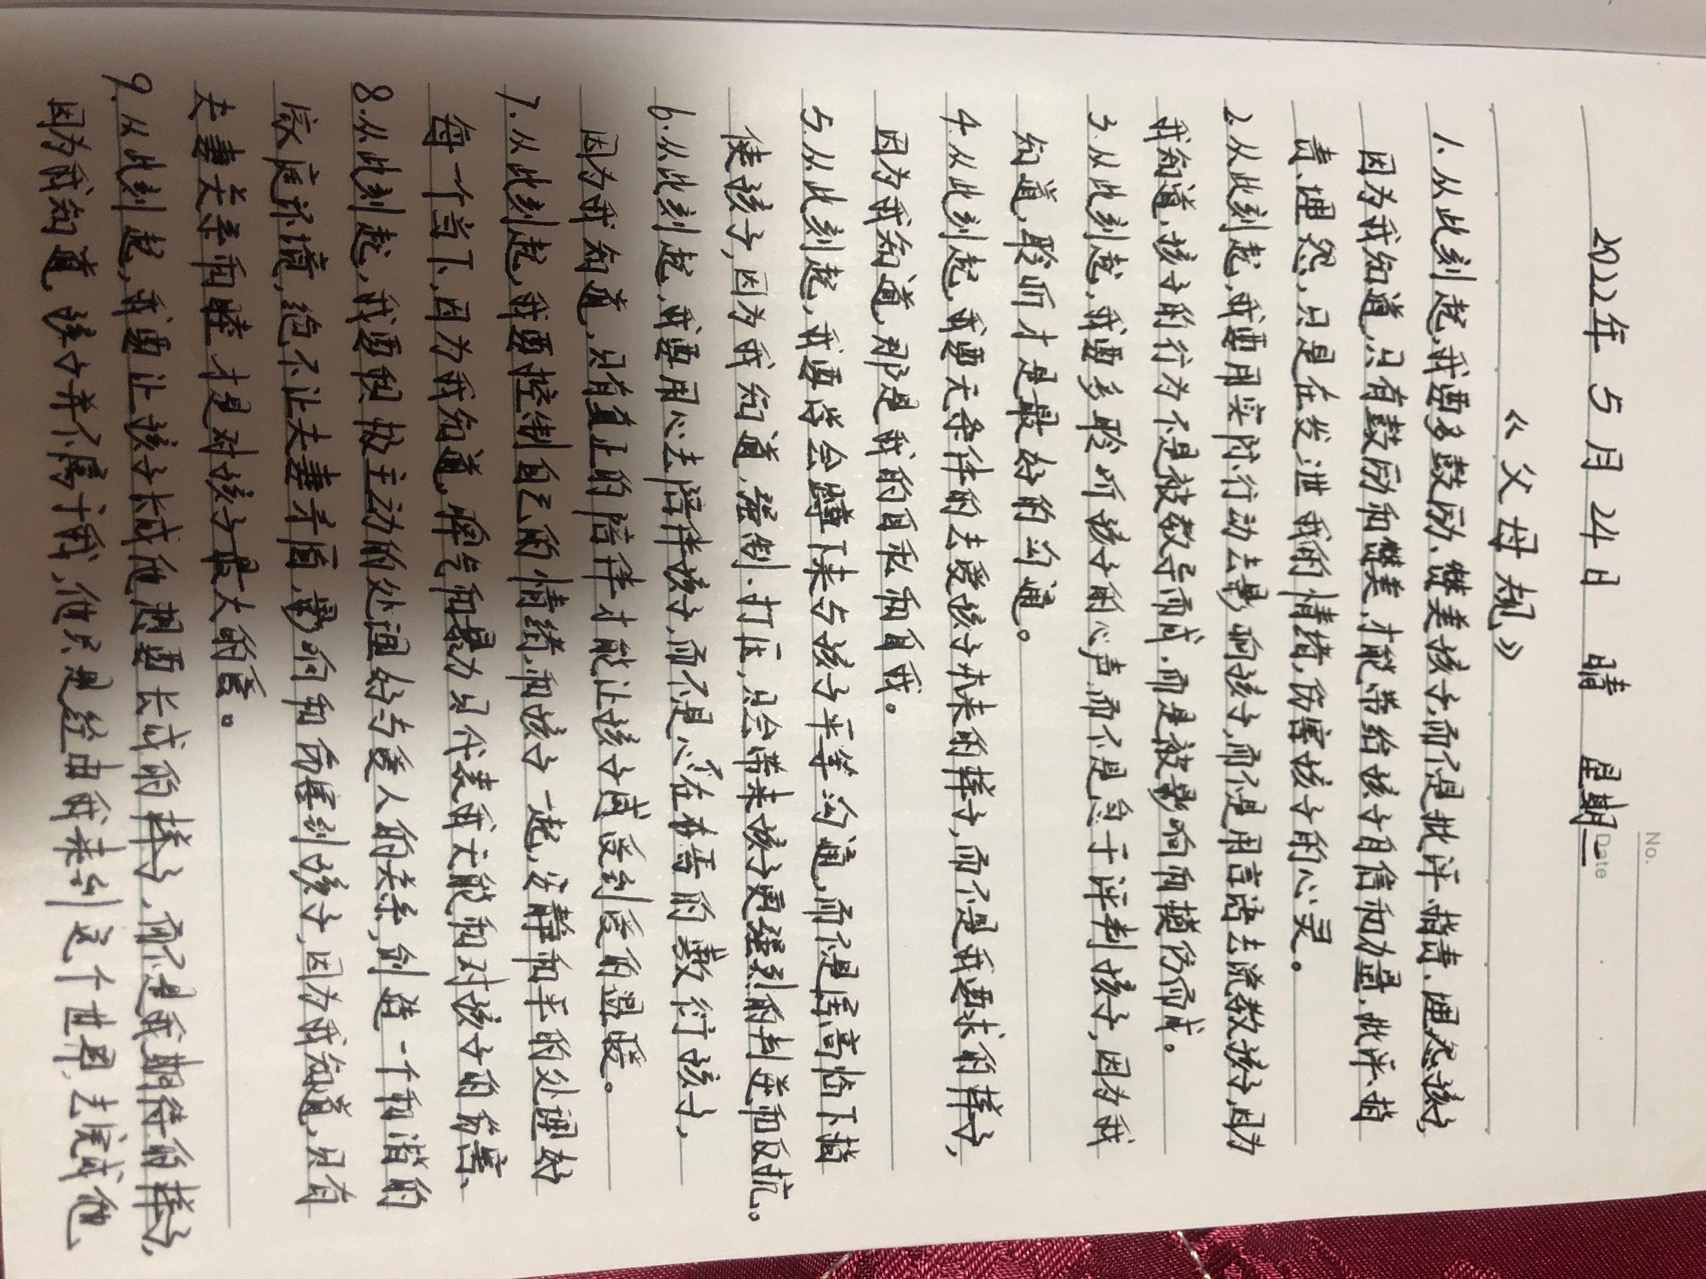 No.
Date
2022年 5月 24日 晴 星期二
《父母规》
1.从此刻起,我要多鼓励、赞美孩子,而不是批评、指责、埋怨孩子,
因为我知道,只有鼓励和赞美,才能带给孩子自信和力量,批评、指
责、埋怨,只是在发泄我的情绪,伤害孩子的心灵。
2.从此刻起,我要用实际行动去影响孩子,而不是用言语去说教孩子,因为
我知道,孩子的行为不是被教导而成,而是被影响和模仿而成。
3.从此刻起,我要多聆听孩子的心声,而不是急于评判孩子,因为我
知道,聆听才是最好的沟通。
4.从此刻起,我要无条件的去爱孩子本来的样子,而不是我要求的样子,
因为我知道,那是我的自私和自我。
5.从此刻起,我要学会蹲下来与孩子平等沟通,而不是居高临下指
使孩子,因为我知道,强制、打压,只会带来孩子更强烈的判逆和反抗。
6.从此刻起,我要用心去陪伴孩子,而不是心不在焉的敷衍孩子,
因为我知道,只有真正的陪伴才能让孩子感受到爱的温暖。
7.从此刻起,我要控制自己的情绪,和孩子一起,安静和平的处理好
每一个当下,因为我知道,脾气和暴力只代表我无能和对孩子的伤害、
8.从此刻起,我要积极主动的处理好与爱人的关系,创造一个和谐的
家庭环境,绝不让夫妻矛盾,影响和伤害到孩子,因为我知道,只有
夫妻关系和睦才是对孩子最大的爱。
9.从此刻起,我要让孩子长成他想要长成的样子,而不是我期待的样子,
因为我知道,孩子并不属于我,他只是经由我来到这个世界,去完成他